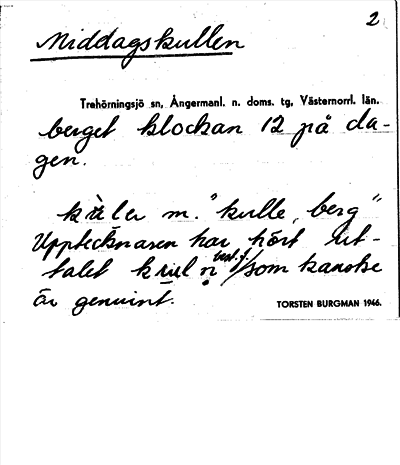 2
Middagskullen
Trehörningsjö sn, Ångermanl. n. doms. tg, Västernorrl. län.
berget klockan 12 på da-
gen.
m. "kulle, berg"
Upptecknaren har hört ut-
talet best. f. som kanske
är genuint.
TORSTEN BURGMAN 1946.